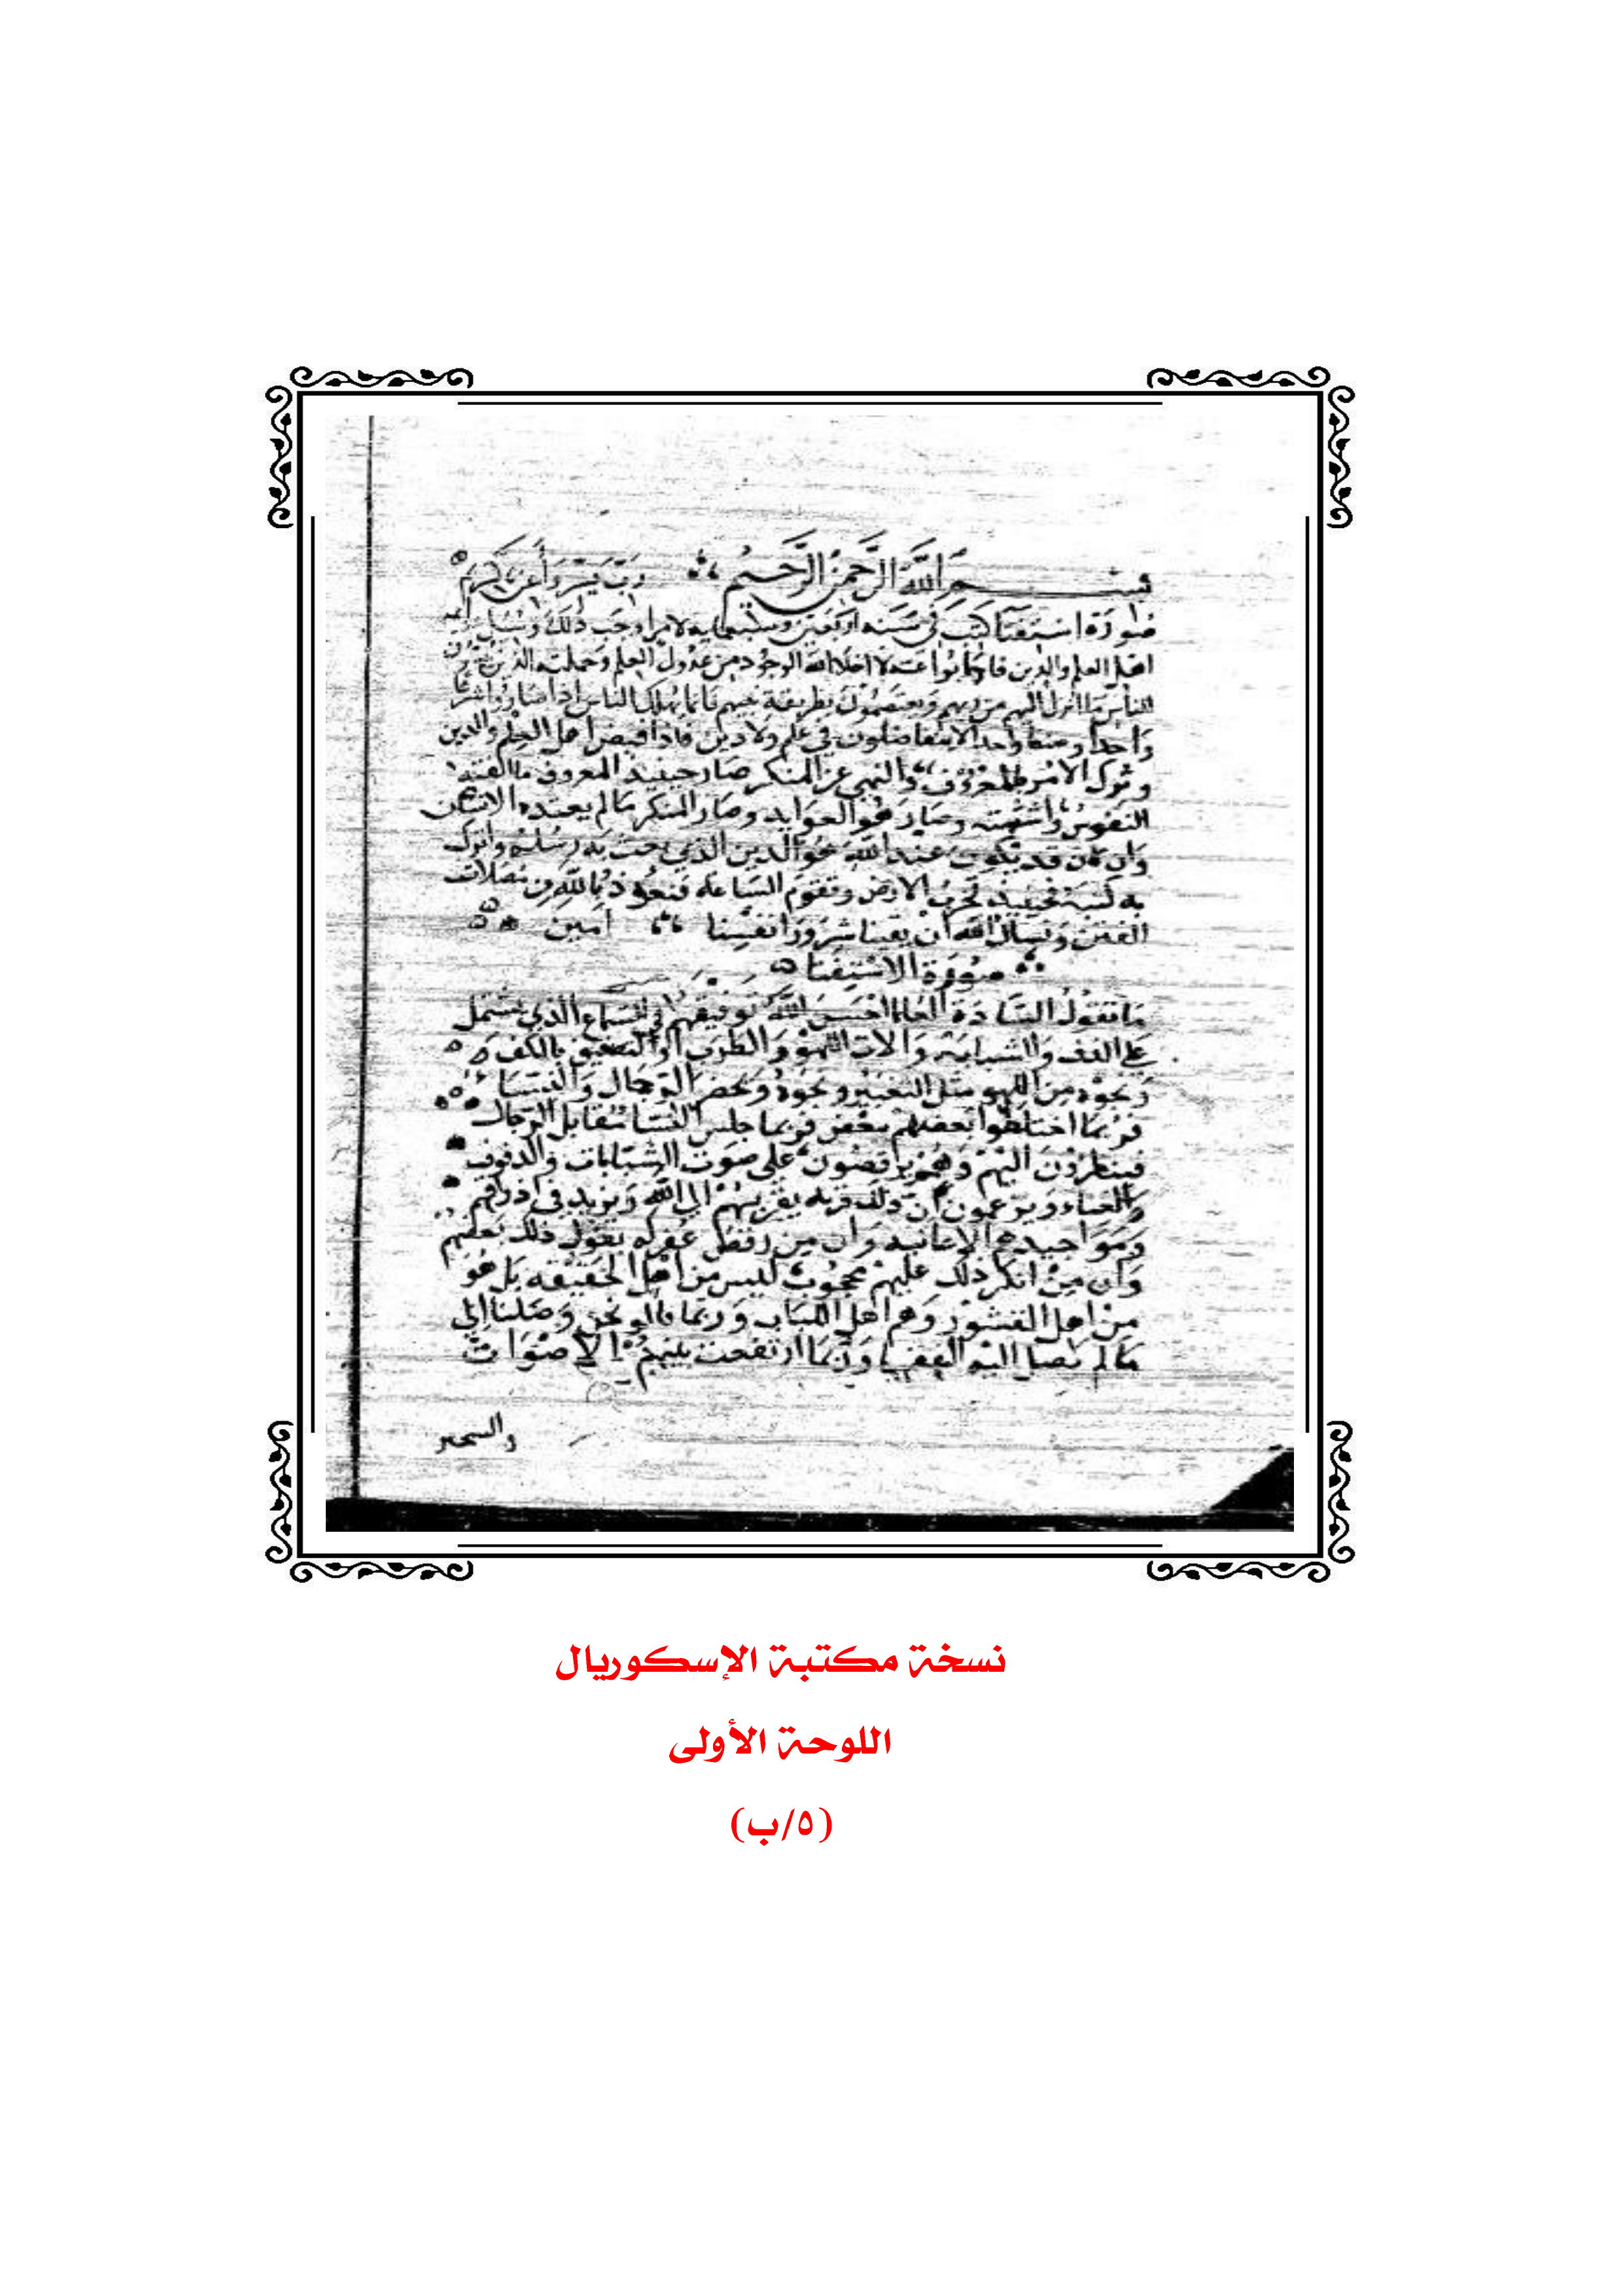 بسم الله الرحمن الرحيم رب يسر وأعن يا كريم
صورة استفتا كتب في سنة اربعين وسبعمايه لامر اوجب ذلك وسيل
اهل العلم والدين فاجابوا عنه لا اخلا الله الوجود من عدول العلم وحملته الذين
للناس ما انزل اليهم من ربهم ويعتصمون بطريقة نبيهم فانما يهلك الناس اذا صاروا
واحدا وصنفا واحدا لا يتفاضلون في علم ولا دين فاذا قبض اهل العلم والدين
وترك الامر بالمعروف والنهي عن المنكر صار حينيذ المعروف ما الفته
النفوس واشتهته وصار هو العوايد وصار المنكر ما لم يعتده الانسان
وان كان قد يكون عند الله هو الدين الذي بعث به رسله وانزل
به كتبه فحينيذ تخرب الارض وتقوم الساعة فنعوذ بالله من مضلات
الفتن ونسال الله ان يقينا شرور انفسنا امين
صورة الاستفتا
ما تقول السادة العلما احسن الله توفيقهم في السماع الذي يشتمل
على الدف والشبابة والات اللهو والطرب او التصفيق بالكف
ونحوه من اللهو مثل التغبير ونحوه ويحضر الرجال والنسا
فربما اختلطوا بعضهم ببعض فربما جلس النسا مقابل الرجال
فينظرون اليهم وهم يرقصون على صوت الشبابات والدفوف
والغناء ويزعمون ان ذلك قربه يقربهم الى الله ويزيد في اذواقهم
ومواجيدهم الايمانيه وان من رقص غفر له يقول ذلك بعضهم
وان من انكر ذلك عليهم محجوب ليس من اهل الحقيقه بل هو
من اهل القشور وهم اهل اللباب وربما قالو نحن وصلنا الى
ما لم يصل اليه الفقها وربما ارتفعت بينهم الاصوات
نسخة مكتبة الإسكوريال
اللوحة الأولى
(٥/ب)